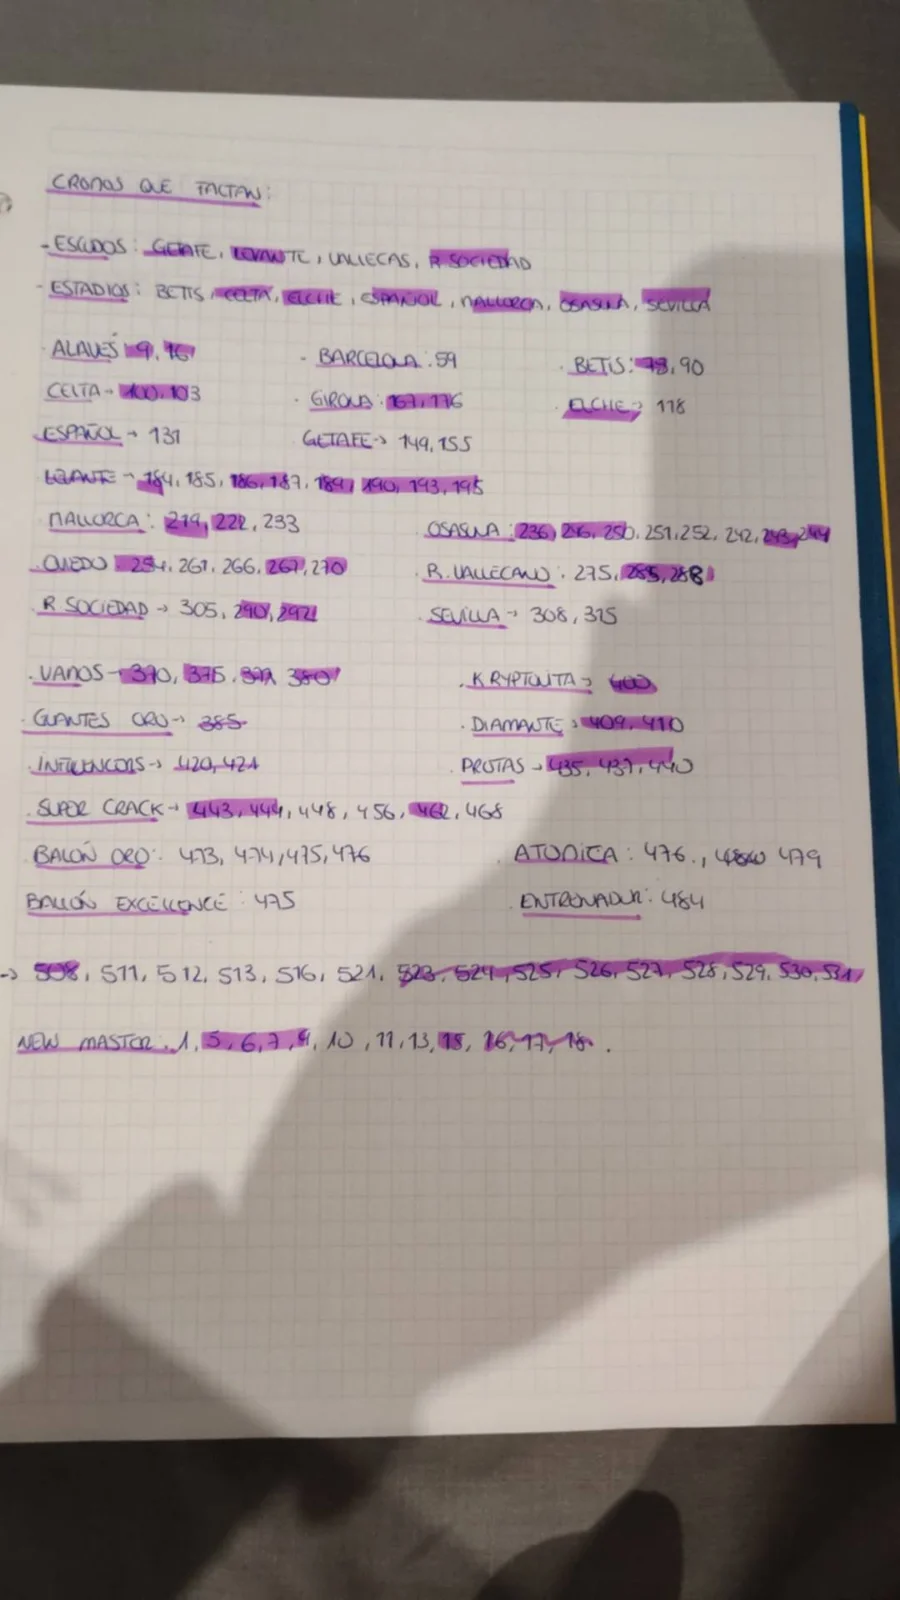 CROMOS QUE FALTAN:
- ESCUDOS: GETAFE, LEVANTE, VALLECAS, R SOCIEDAD
- ESTADIOS: BETIS, CELTA, ELCHE, ESPAÑOL, MALLORCA, OSASUNA, SEVILLA
· ALAVÉS 9, 16 · BARCELONA: 59 · BETIS: 78, 90
CELTA → 100, 103 · GIRONA: 167, 176 · ELCHE → 118
ESPAÑOL → 131 GETAFE → 149, 155
LEVANTE → 184, 185, 186, 187, 189, 190, 193, 195
MALLORCA: 219, 222, 233 OSASUNA: 236, 246, 250, 251, 252, 242, 243, 244
OVIEDO 254, 261, 266, 267, 270 R. VALLECANO: 275, 285, 288
R SOCIEDAD → 305, 290, 292 SEVILLA → 308, 315
· VAMOS → 370, 375, 377, 380 · KRYPTONITA → 400
· GUANTES ORO → 385 · DIAMANTE → 409, 410
· INFLUENCERS → 420, 421 PROTAS → 435, 437, 440
· SUPER CRACK → 443, 444, 448, 456, 462, 468
BALÓN ORO: 473, 474, 475, 476 · ATOMICA: 476, 479
BALLÓN EXCELLENCE: 475 · ENTRENADOR: 484
→ 508, 511, 512, 513, 516, 521, 523, 524, 525, 526, 527, 528, 529, 530, 531
NEW MASTER: 1, 5, 6, 7, 9, 10, 11, 13, 15, 16, 17, 18.